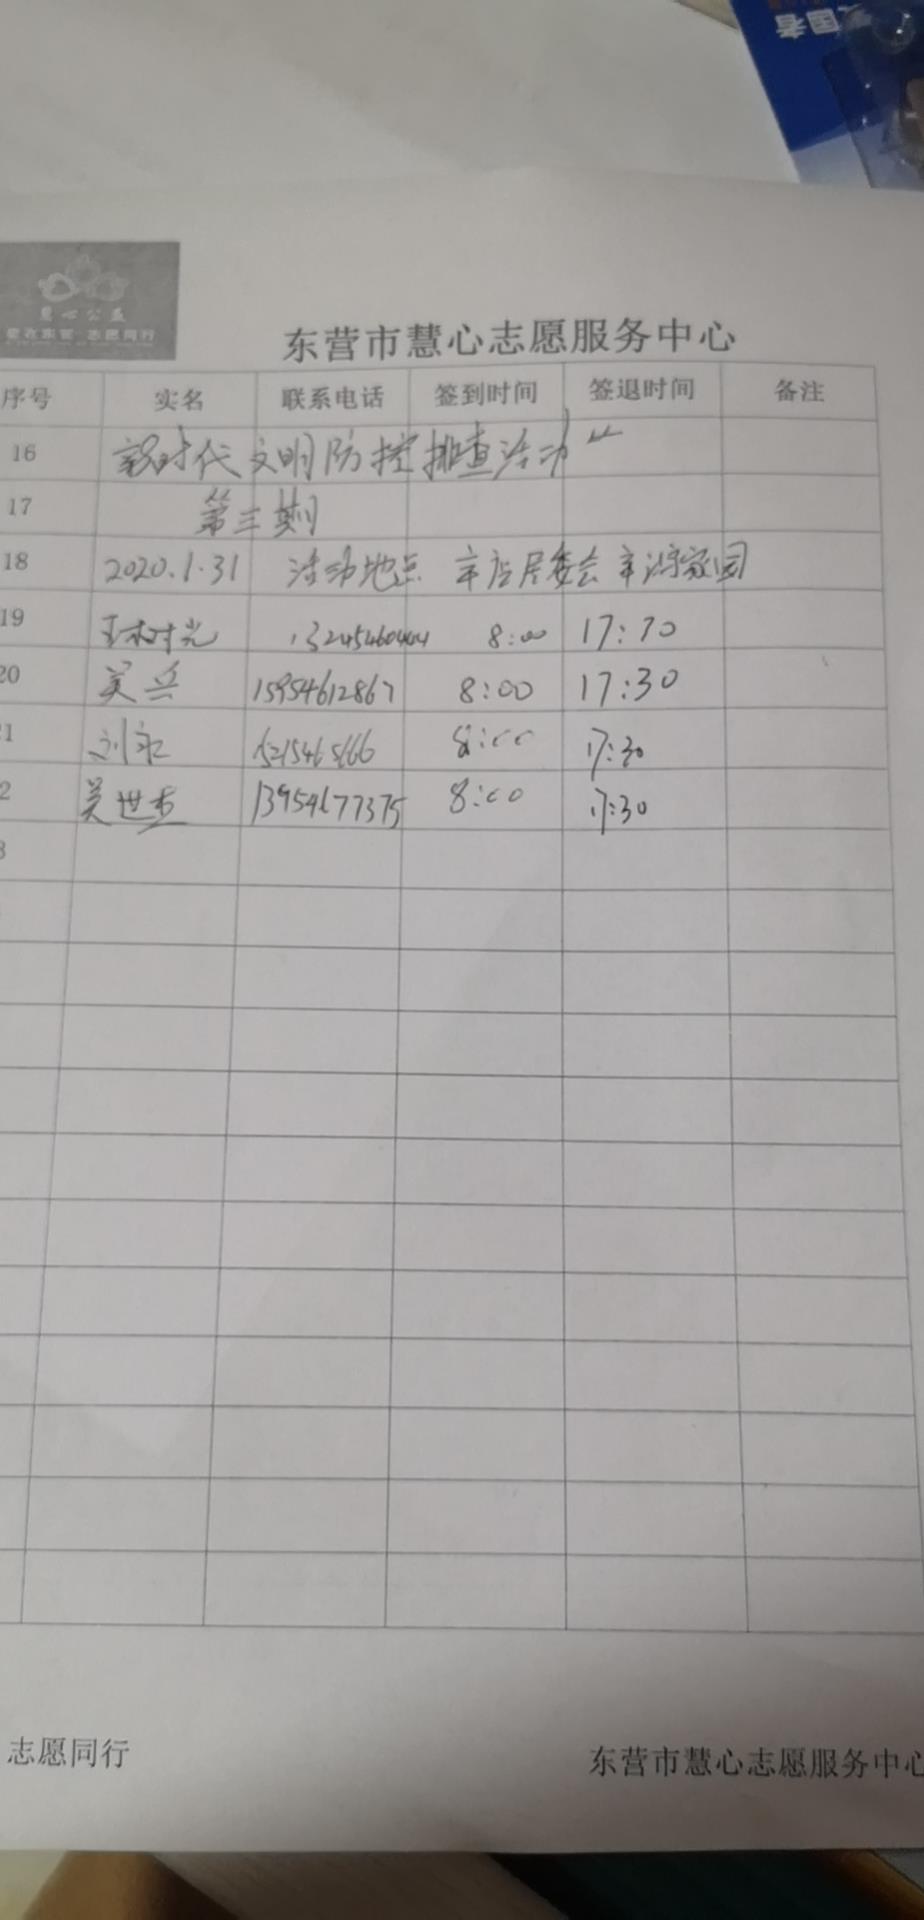 国者
慧心公益
志愿同行
东营市慧心志愿服务中心
序号 实名 联系电话 签到时间 签退时间 备注
16 新时代文明防控排查活动"
17 第三期
18 2020.1.31 活动地点 辛店居委会 家园
19 8:00 17:30
20 吴兵 15954612867 8:00 17:30
1 刘永 8:00 17:30
2 吴世杰 13954677375 8:00 17:30
3
志愿同行 东营市慧心志愿服务中心